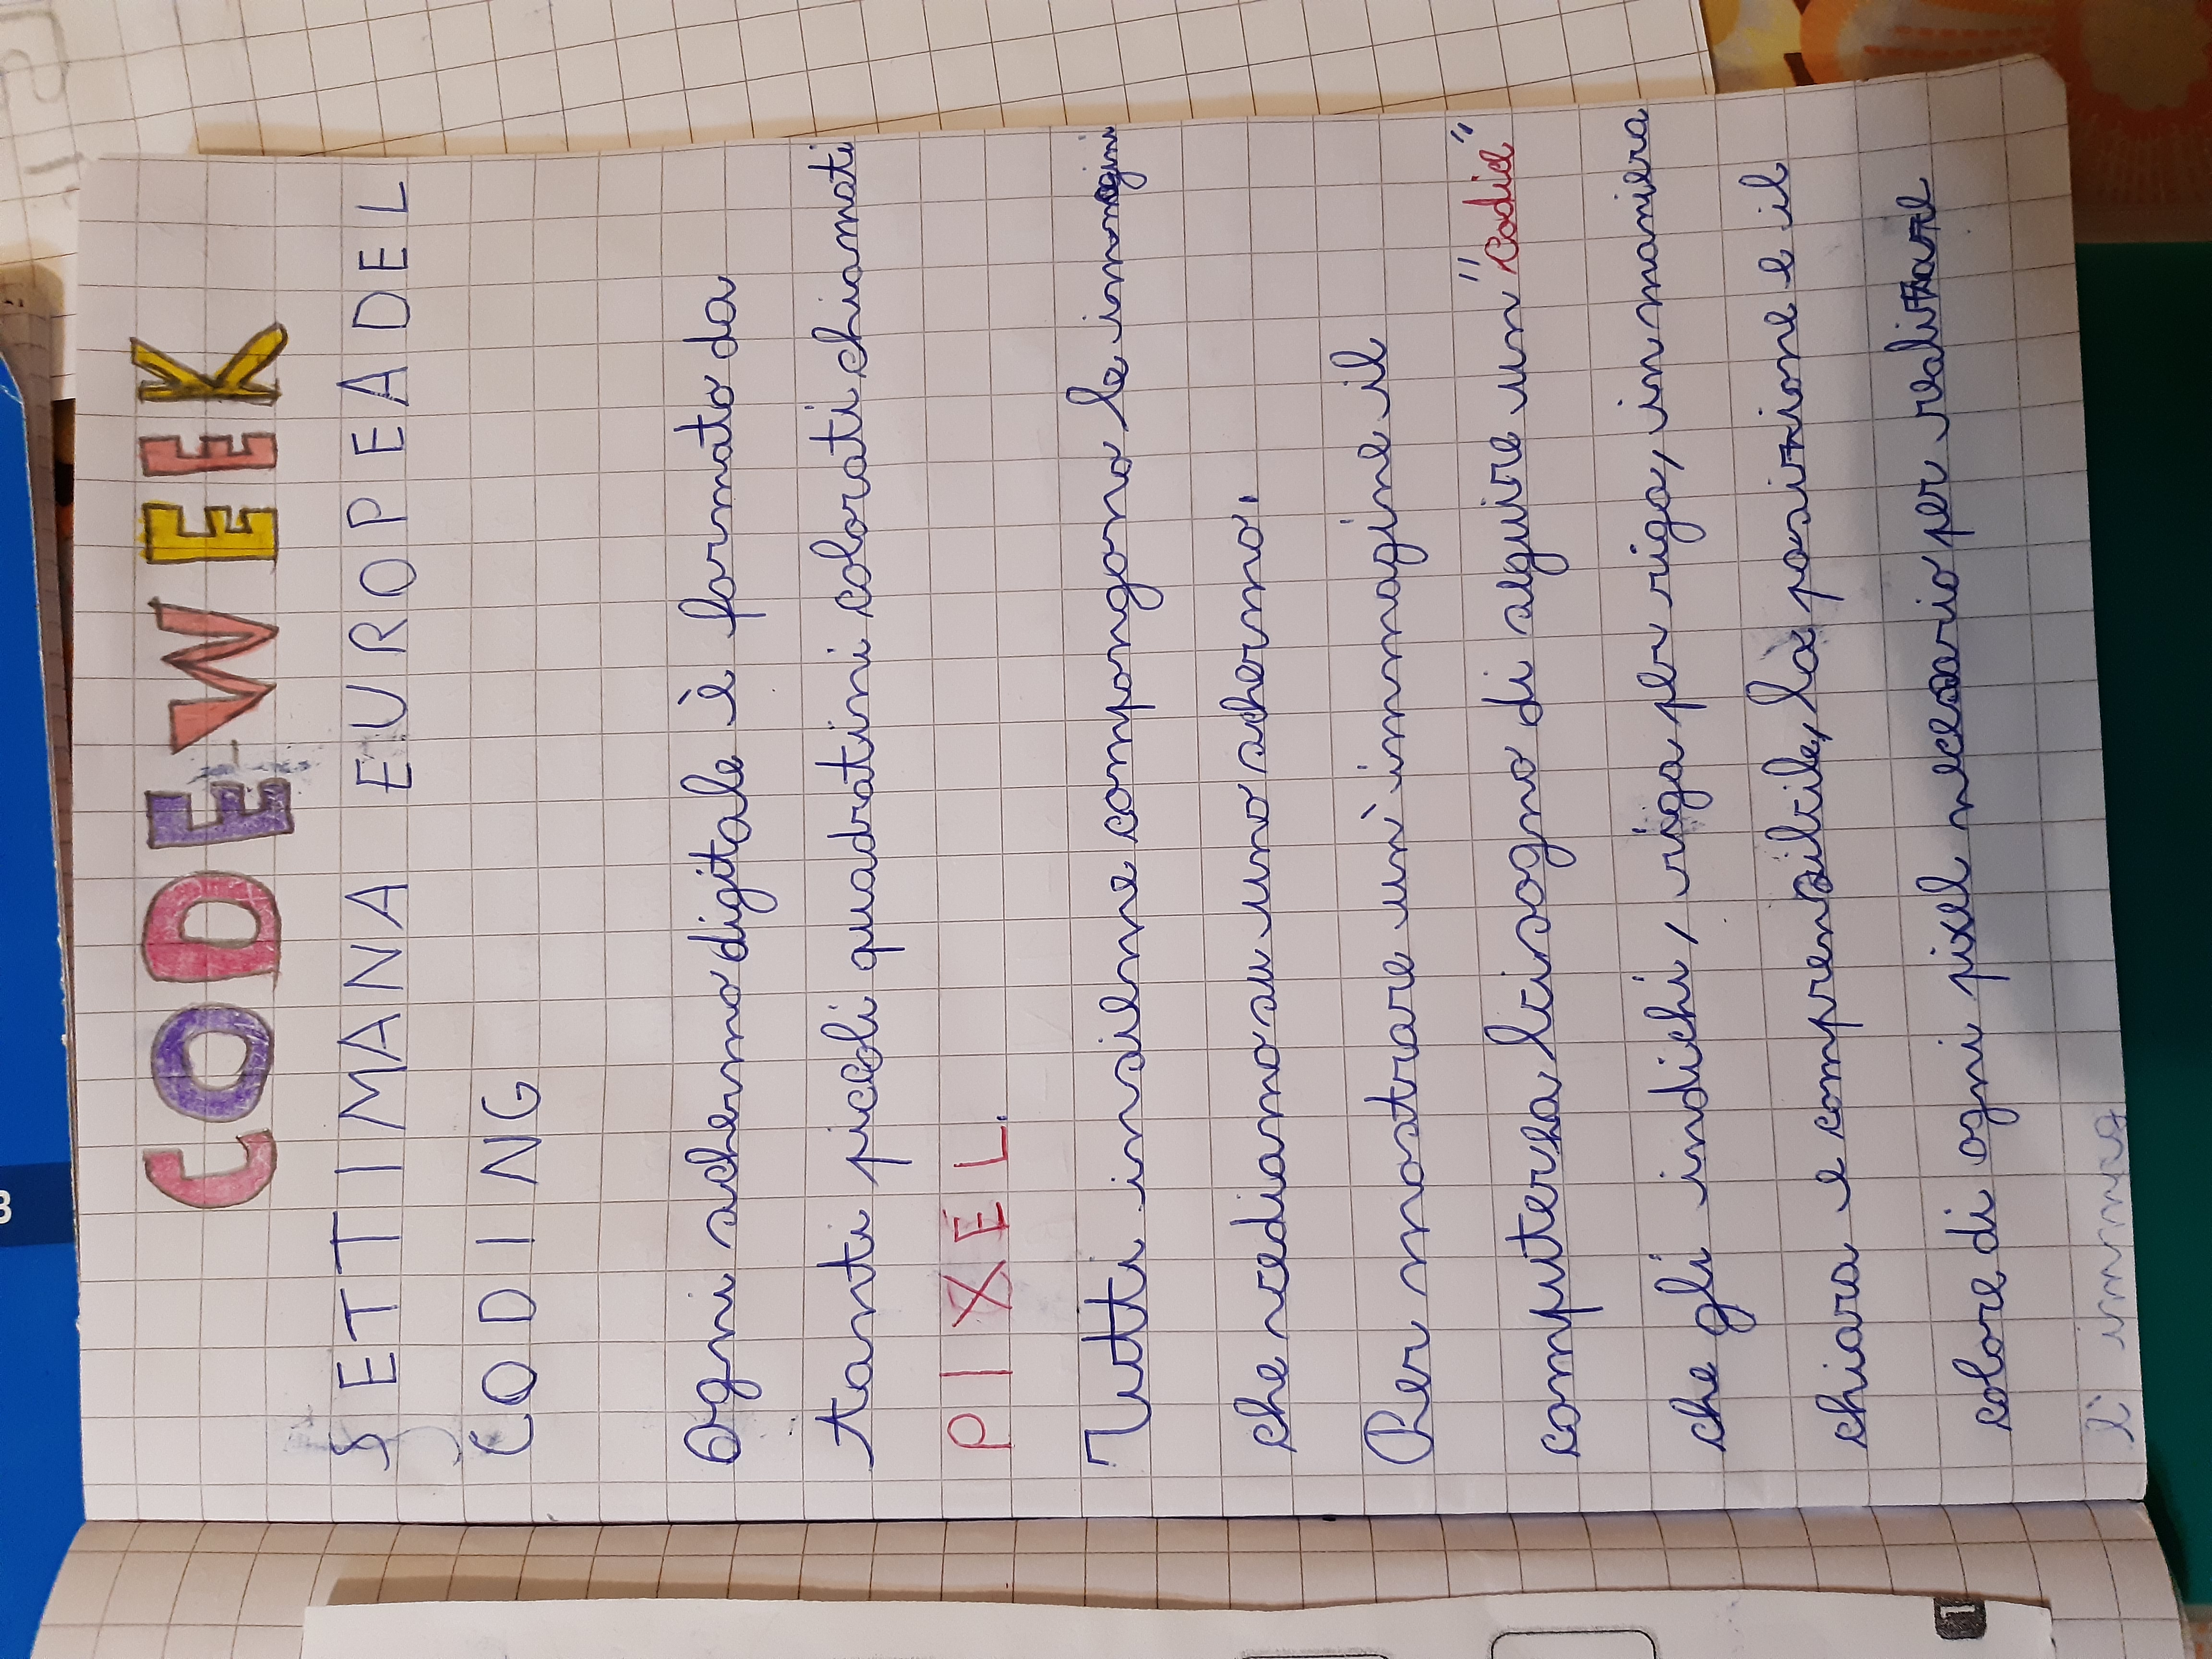 CODE WEEK
SETTIMANA EUROPEA DEL
CODING
Ogni schermo digitale è formato da
tanti piccoli quadratini colorati chiamati
PIXEL.
Tutti insieme compongono le immagini
che vediamo su uno schermo.
Per mostrare un'immagine il
computer ha bisogno di seguire un "codice"
che gli indichi, riga per riga, in maniera
chiara e comprensibile, la posizione e il
colore di ogni pixel necessario per realizzare
l'immag
1
3